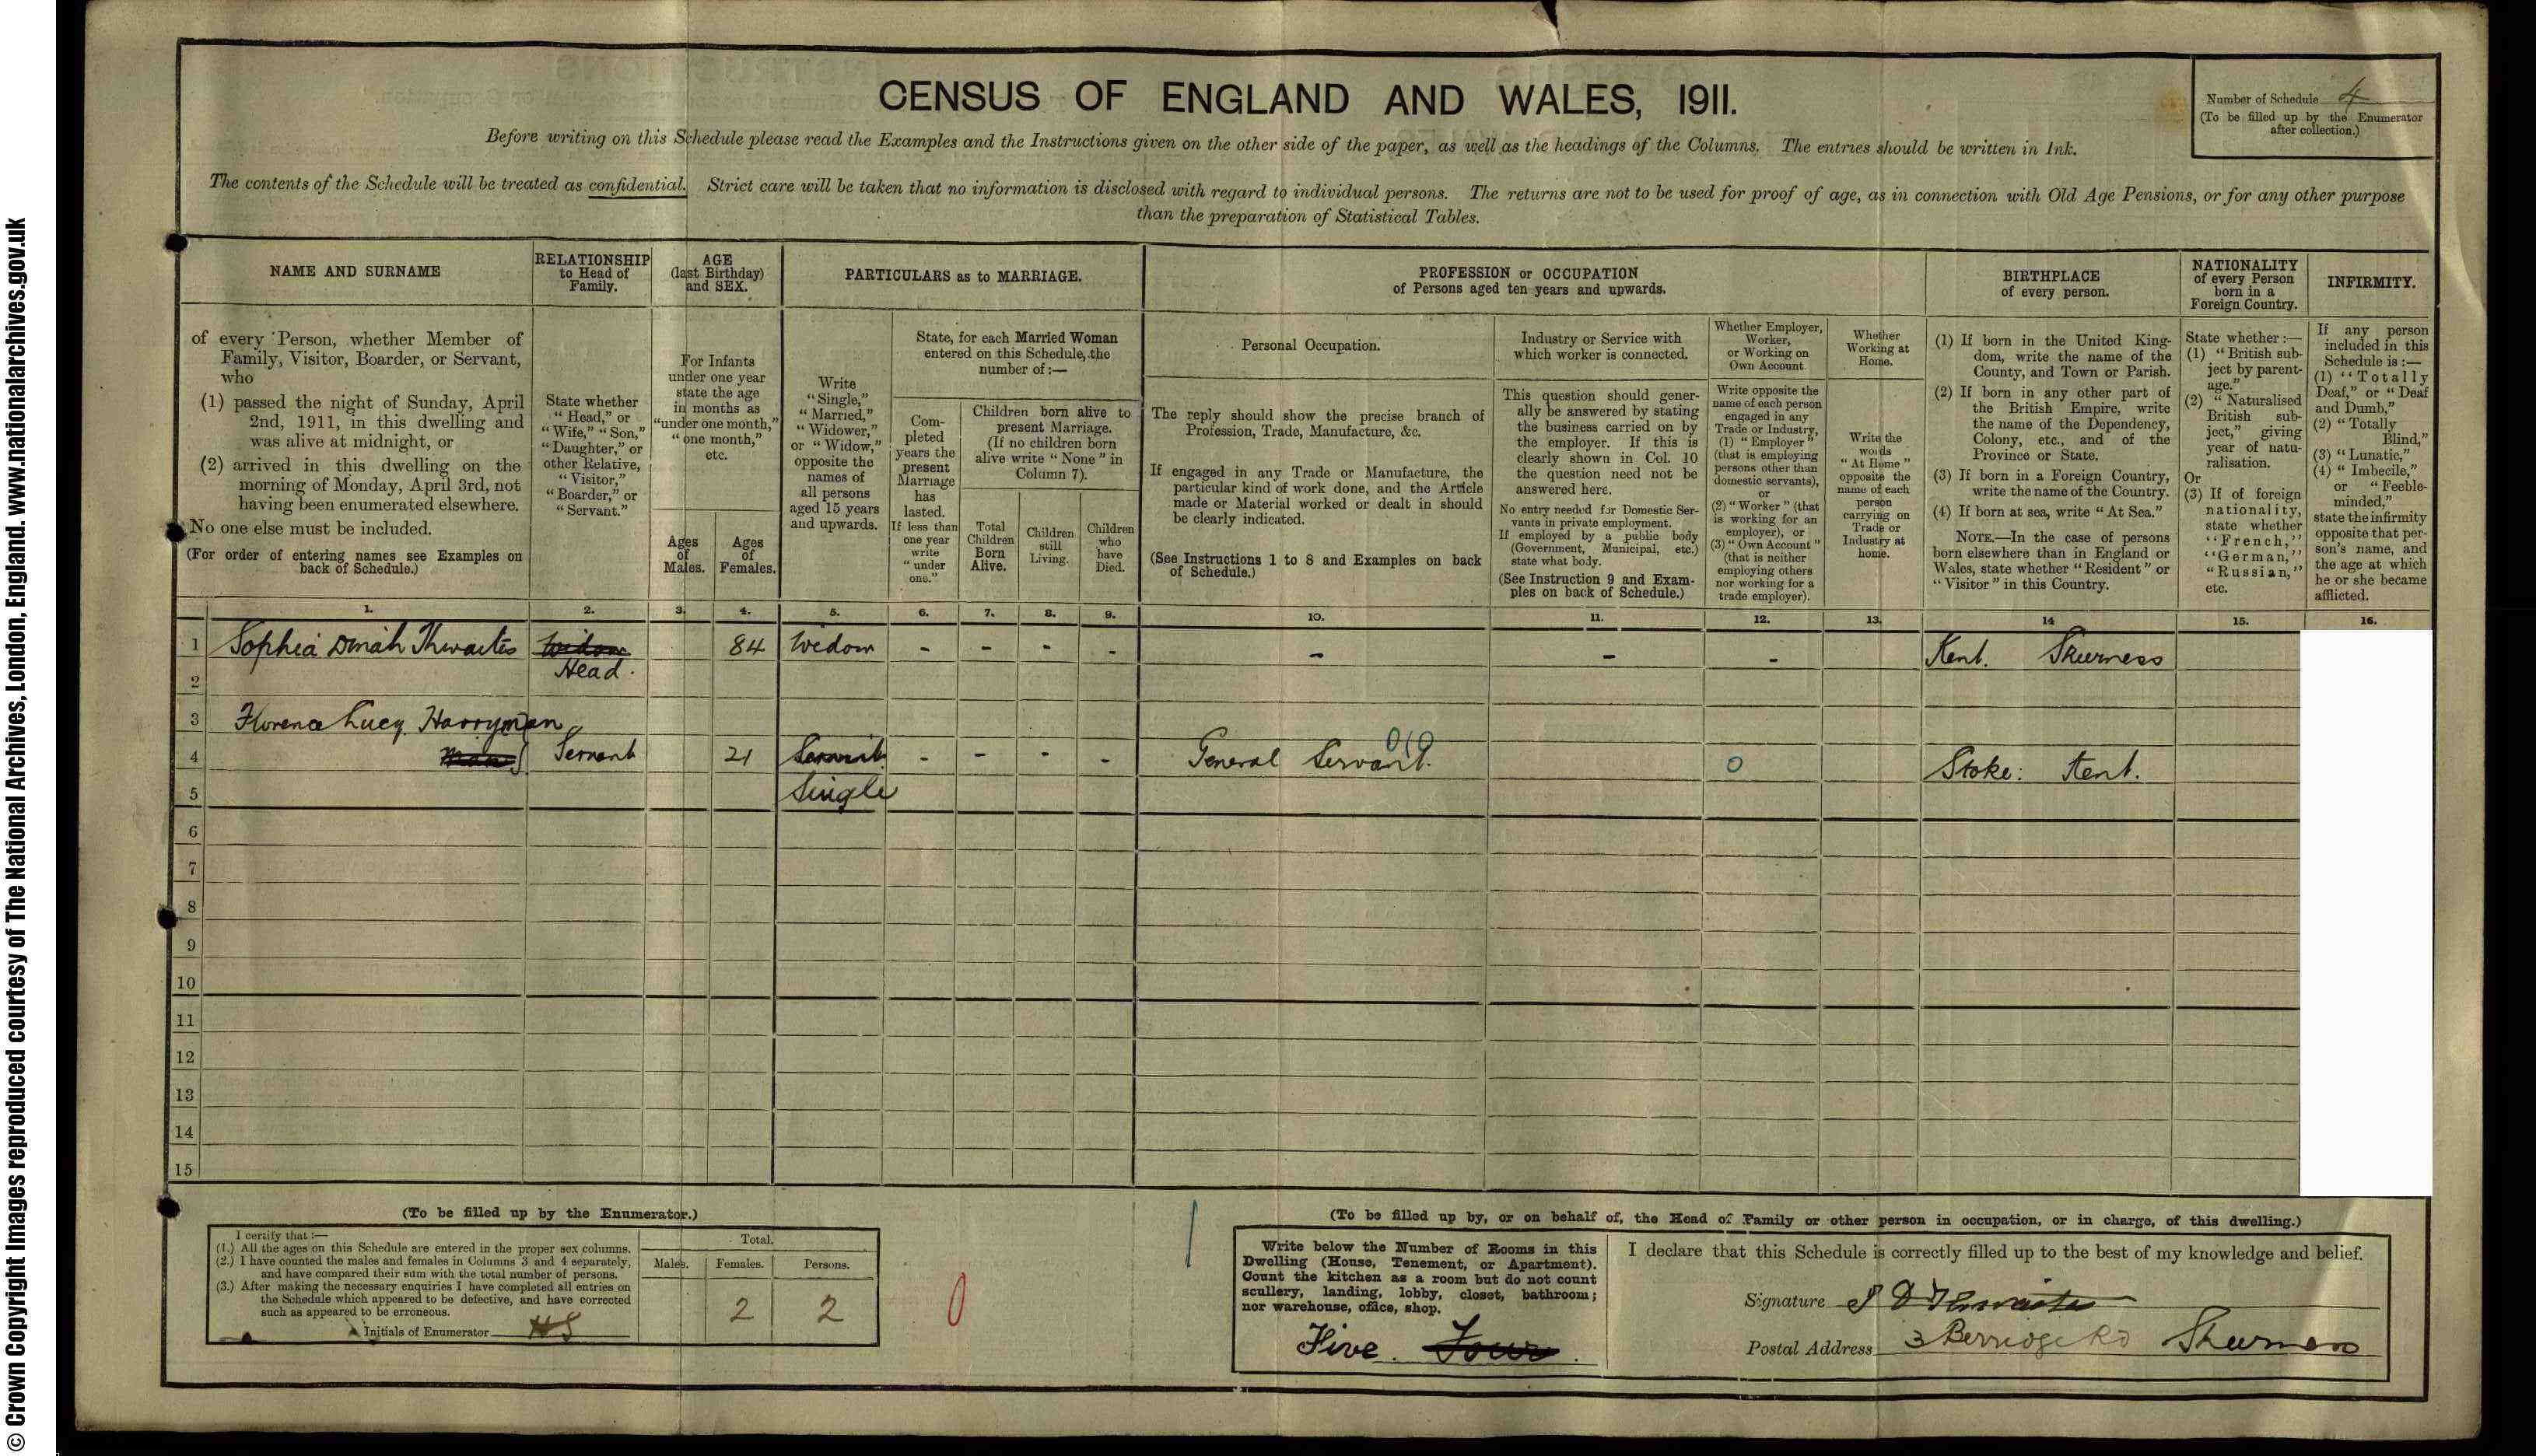 © Crown Copyright Images reproduced courtesy of The National Archives, London, England. www.nationalarchives.gov.uk
CENSUS OF ENGLAND AND WALES, 1911.
Number of Schedule 4
(To be filled up by the Enumerator
after collection.)
Before writing on this Schedule please read the Examples and the Instructions given on the other side of the paper, as well as the headings of the Columns. The entries should be written in Ink.
The contents of the Schedule will be treated as confidential. Strict care will be taken that no information is disclosed with regard to individual persons. The returns are not to be used for proof of age, as in connection with Old Age Pensions, or for any other purpose
than the preparation of Statistical Tables.
NAME AND SURNAME
of every Person, whether Member of
Family, Visitor, Boarder, or Servant,
who
(1) passed the night of Sunday, April
2nd, 1911, in this dwelling and
was alive at midnight, or
(2) arrived in this dwelling on the
morning of Monday, April 3rd, not
having been enumerated elsewhere.
No one else must be included.
(For order of entering names see Examples on
back of Schedule.)
RELATIONSHIP
to Head of
Family.
State whether
"Head," or
"Wife," "Son,"
"Daughter," or
other Relative,
"Visitor,"
"Boarder," or
"Servant."
AGE
(last Birthday)
and SEX.
For Infants
under one year
state the age
in months as
"under one month,"
"one month,"
etc.
Ages
of
Males.
Ages
of
Females.
PARTICULARS as to MARRIAGE.
Write
"Single,"
"Married,"
"Widower,"
or "Widow,"
opposite the
names of
all persons
aged 15 years
and upwards.
State, for each Married Woman
entered on this Schedule, the
number of :—
Com-
pleted
years the
present
Marriage
has
lasted.
If less than
one year
write
"under
one."
Children born alive to
present Marriage.
(If no children born
alive write "None" in
Column 7).
Total
Children
Born
Alive.
Children
still
Living.
Children
who
have
Died.
PROFESSION or OCCUPATION
of Persons aged ten years and upwards.
Personal Occupation.
The reply should show the precise branch of
Profession, Trade, Manufacture, &c.
If engaged in any Trade or Manufacture, the
particular kind of work done, and the Article
made or Material worked or dealt in should
be clearly indicated.
(See Instructions 1 to 8 and Examples on back
of Schedule.)
Industry or Service with
which worker is connected.
This question should gener-
ally be answered by stating
the business carried on by
the employer. If this is
clearly shown in Col. 10
the question need not be
answered here.
No entry needed for Domestic Ser-
vants in private employment.
If employed by a public body
(Government, Municipal, etc.)
state what body.
(See Instruction 9 and Exam-
ples on back of Schedule.)
Whether Employer,
Worker,
or Working on
Own Account
Write opposite the
name of each person
engaged in any
Trade or Industry,
(1) "Employer"
(that is employing
persons other than
domestic servants),
or
(2) "Worker" (that
is working for an
employer), or
(3) "Own Account"
(that is neither
employing others
nor working for a
trade employer).
Whether
Working at
Home.
Write the
words
"At Home"
opposite the
name of each
person
carrying on
Trade or
Industry at
home.
BIRTHPLACE
of every person.
(1) If born in the United King-
dom, write the name of the
County, and Town or Parish.
(2) If born in any other part of
the British Empire, write
the name of the Dependency,
Colony, etc., and of the
Province or State.
(3) If born in a Foreign Country,
write the name of the Country.
(4) If born at sea, write "At Sea."
NOTE.—In the case of persons
born elsewhere than in England or
Wales, state whether "Resident" or
"Visitor" in this Country.
NATIONALITY
of every Person
born in a
Foreign Country.
State whether :—
(1) "British sub-
ject by parent-
age."
(2) "Naturalised
British sub-
ject," giving
year of natu-
ralisation.
Or
(3) If of foreign
nationality,
state whether
"French,"
"German,"
"Russian,"
etc.
INFIRMITY.
If any person
included in this
Schedule is :—
(1) "Totally
Deaf," or "Deaf
and Dumb,"
(2) "Totally
Blind,"
(3) "Lunatic,"
(4) "Imbecile,"
or "Feeble-
minded,"
state the infirmity
opposite that per-
son's name, and
the age at which
he or she became
afflicted.
1. 2. 3. 4. 5. 6. 7. 8. 9. 10. 11. 12. 13. 14 15. 16.
1 Sophia Dinah Thwaites Widow 84 Widow - - - - - - - Kent. Sheerness
Head.
2
3 Florence Lucy Harryman
4 man Servant 21 Servant - - - - General Servant. 010 0 Stoke: Kent.
5 Single
6
7
8
9
10
11
12
13
14
15
(To be filled up by the Enumerator.)
I certify that :—
(1.) All the ages on this Schedule are entered in the proper sex columns.
(2.) I have counted the males and females in Columns 3 and 4 separately,
and have compared their sum with the total number of persons.
(3.) After making the necessary enquiries I have completed all entries on
the Schedule which appeared to be defective, and have corrected
such as appeared to be erroneous.
Initials of Enumerator HS
Total.
Males. Females. Persons.
2 2
0
1
(To be filled up by, or on behalf of, the Head of Family or other person in occupation, or in charge, of this dwelling.)
Write below the Number of Rooms in this
Dwelling (House, Tenement, or Apartment).
Count the kitchen as a room but do not count
scullery, landing, lobby, closet, bathroom;
nor warehouse, office, shop.
Five. Four.
I declare that this Schedule is correctly filled up to the best of my knowledge and belief.
Signature S D Thwaites
Postal Address 3 Berridge Rd Sheerness